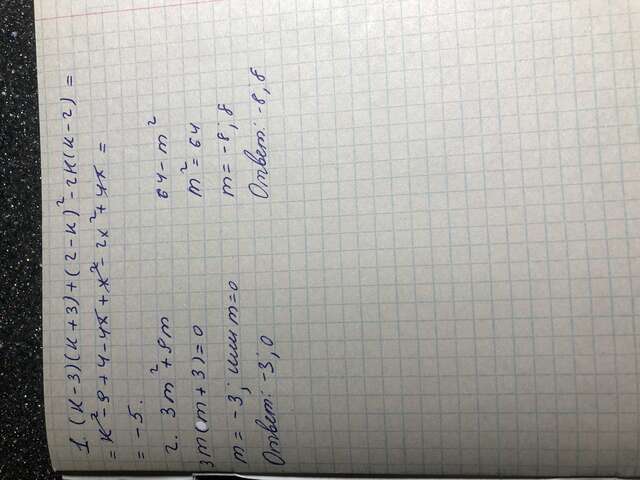 1. (к-3)(к+3)+(2-к)²-2к(к-2)=
= к²-9+4-4к+к²-2к²+4к =
= -5.
2. 3m²+9m
3m(m+3)=0
m=-3; или m=0
Ответ: -3; 0
64-m²
m²=64
m=-8; 8
Ответ: -8; 8